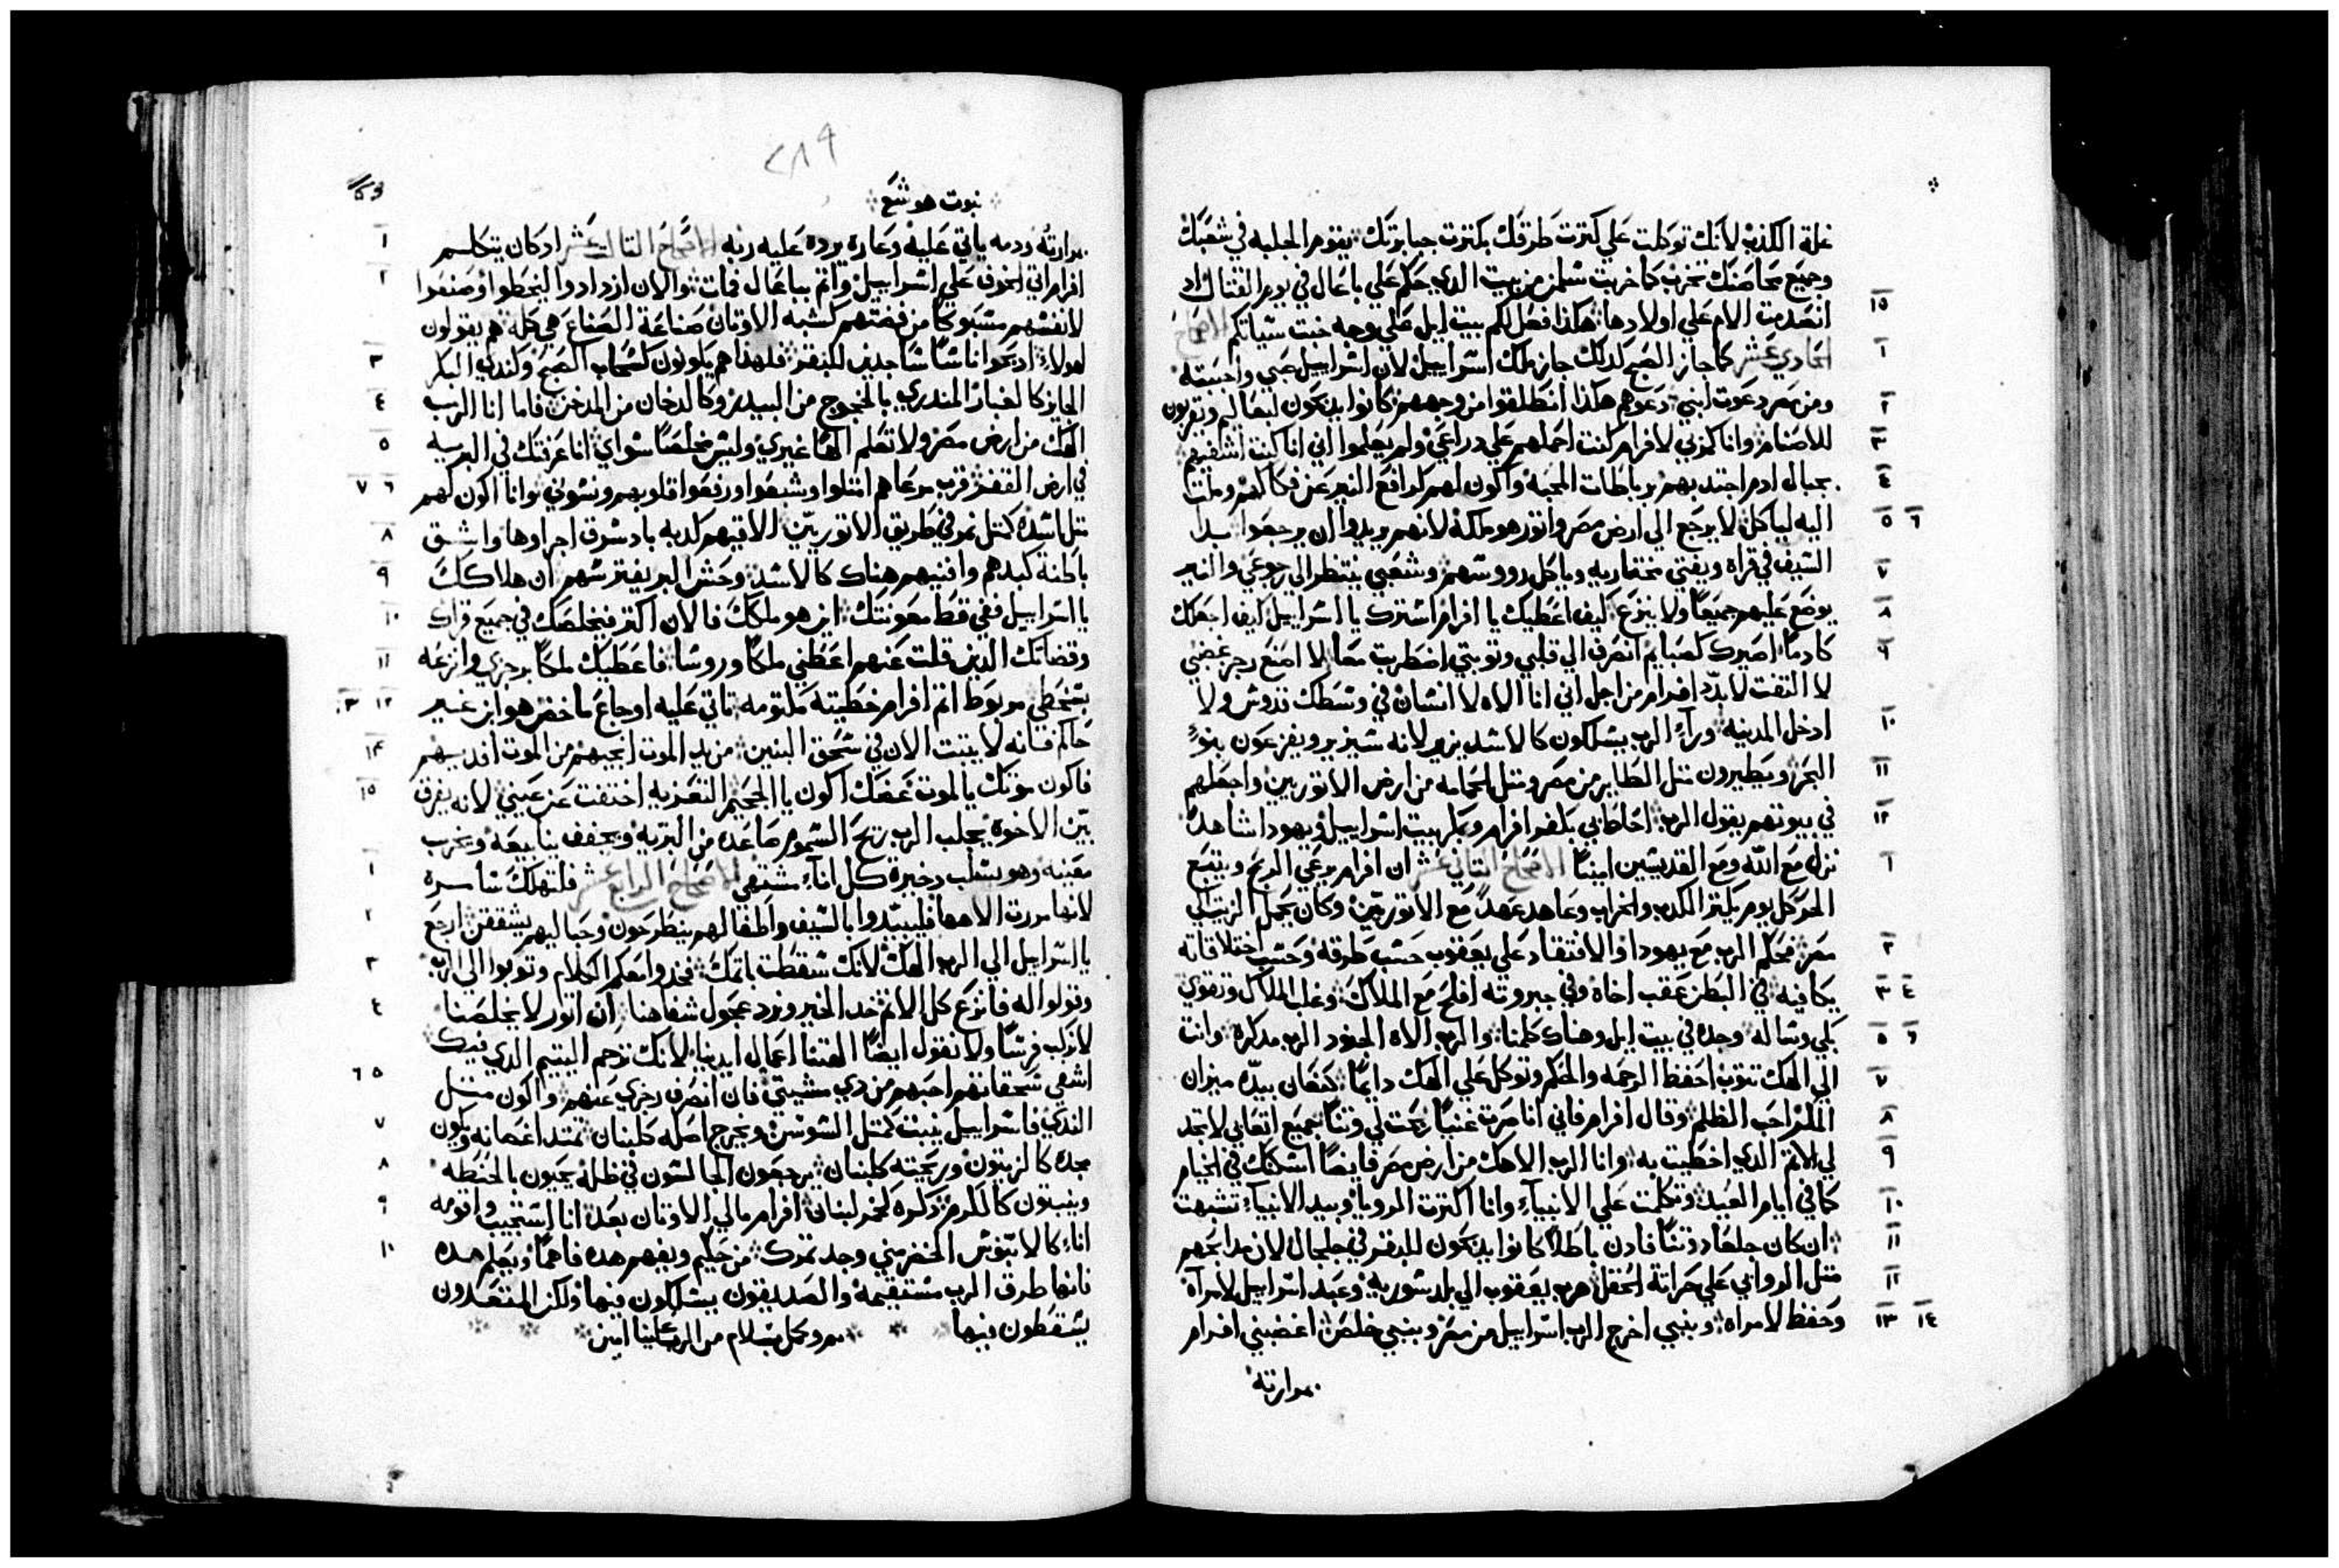 غلة الكذب لانك توكلت علي كترت طرقك بكترت جبابرتك يقوم الجلبه في شعبك
وجميع محاصنك تخرب كما خربت شلمن من بيت الدي حكم علي باعال في يوم القتال اد
١٥ انصدمت الام علي اولادها هكذا فعل لكم بيت ايل علي وجه خبت سياتكم الاصحاح
١ الحادي عشر كما جاز الصبح كدلك جاز ملك اسراييل لان اسراييل صبي واحببته
٢ ومن مصر دعوت ابني دعوهم هكذا انطلقوا من وجههم كانوا يدبحون لبعاليم ويقربون
٣ للاصنام وانا كمربي لافرام كنت احملهم علي دراعي ولم يعلموا اني انا كنت اشفيهم
٤ بحبال ادم اجتدبهم برباطات المحبه واكون لهم كرافع النير عن فكاكهم وملت
٥ ٦ اليه لياكل لا يرجع الي ارض مصر واتور هو ملكه لانهم يريدوا ان يرجعوا بدا
٧ السيف في قراه ويفني مختاريه وياكل رووسهم وشعبي ينتظر الي رجوعي والنير
٨ يوضع عليهم جميعا ولا ينزع كيف اعطيك يا افرام استرك يا اسراييل كيف اجعلك
٩ كادما اصيرك كصبايم انصرف الي قلبي وتوبتي اضطربت معا لا اصنع رجز غضبي
لا التفت لابدد افرام من اجل اني انا الاه لا انسان في وسطك قدوس ولا
١٠ ادخل المدينه ورآء الرب يسلكون كالاسد يزير لانه سيزير ويفزعون بنو
١١ البحر ويطيرون متل الطاير من مصر ومتل الحمامه من ارض الاتوريين واجعلهم
١٢ في بيوتهم يقول الرب احاط بي بكفر افرام وبكر بيت اسراييل ويهودا شاهدا
١ نزل مع الله ومع القديسين امينا الاصحاح التاني عشر ان افرام يرعي الريح ويتبع
الحر كل يوم يكتر الكدب والخراب وعاهد عهدا مع الاتوريين وكان يحمل الزيت الي
٢ مصر فحكم الرب مع يهودا والافتقاد علي يعقوب حسب طرقه وحسب اختلاقاته
٣ ٤ يكافيه في البطن عقب اخاه وفي جبروته افلح مع الملاك وغلب الملاك وتقوي
٥ ٦ بكي وساله وجده في بيت ايل وهناك كلمنا والرب الاه الجنود الرب مدكره وانت
٧ الي الهك تتوب احفظ الرحمه والحكم وتوكل علي الهك دايما كنعان بيده ميزان
٨ المكر احب الظلم وقال افرام فاني انا صرت غنيا نجحت لي وتنا جميع اتعابي لا تجد
٩ لي الاتم الدي اخطيت به وانا الرب الاهك من ارض مصر فايضا اسكنك في الخيام
١٠ كما في ايام العيد وتكلمت علي الانبيآء وانا اكترت الرويا وبيد الانبيآء تشبهت
١١ ان كان جلعاد وتنا فادن باطلا كانوا يدبحون للبقر في جلجال لان مدابحهم
١٢ متل الروابي علي حراتة الحقل هرب يعقوب الي بلد سوريه وعبد اسراييل لامرآه
١٣ ١٤ وحفظ لامراه وبنبي اخرج الرب اسراييل من مصر وبنبي خلص اغضبني افرام
بمرارته
٢٨٩
نبوت هوشع
١ بمرارته ودمه ياتي عليه وعاره يرده عليه ربه الاصحاح التالت عشر ادكان يتكلم
٢ افرام اتي الخوف علي اسراييل واتم بباعال فمات توا لان ازدادوا ليخطوا وصنعوا
لانفسهم مسبوكا من فضتهم كشبه الاوتان صناعة الصناع هي كله هم يقولون
٣ لهولاء ادبحوا اناسا ساجدين للبقر فلهذا هم يكونون كسحاب الصبح وكندي البكر
٤ الجايز كالغبار المندري بالخجوج من البيدر وكالدخان من المدخن فاما انا الرب
٥ الهك من ارض مصر ولا تعلم الها غيري وليس مخلصا سواي انا عرفتك في البريه
٦ ٧ في ارض القفر قرب مرعاهم امتلوا وشبعوا ورفعوا قلوبهم ونسوني وانا اكون لهم
٨ متل اسده كمتل نمر في طريق الاتوريين الاقيهم كدبه بادشوق اجراوها واشق
٩ باطنة كبدهم وافنيهم هناك كالاسد وحش البر يفترسهم ان هلاكك
١٠ يا اسراييل ففي فقط معونتك اين هو ملكك فالان اكتر فيخلصك في جميع قراك
١١ وقضاتك الدين قلت عنهم اعطني ملكا وروسا فاعطيك ملكا برجزي وانزعه
١٢ ١٣ بسخطي مربوط اتم افرام خطيته مكتومه تاتي عليه اوجاع ماخض هو ابن غير
١٤ حاكم فانه لا يتبت الان في سحق البنين من يد الموت انجيهم من الموت افديهم
١٥ فاكون موتك يا الموت عضك اكون يا الجحيم التعزيه اختفت عن عيني لانه يفرق
بين الاخوة يجلب الرب ريح السموم صاعده من البريه ويجفف ينابيعه ويخرب
١ معينه وهو يسلب دخيرة كل اناء مشتهي الاصحاح الرابع عشر فلتهلك سامره
٢ لانها مررت الاهها فليبيدوا بالسيف واطفالهم ينطرحون وحباليهم يشققن ارجع
٣ يا اسراييل الي الرب الهك لانك سقطت باتمك فخدوا معكم الكلام وتوبوا الي الرب
٤ وقولوا له فانزع كل الاتم خد الخير ونرد عجول شفاهنا ان اتور لا يخلصنا
لا نركب فرسا ولا نقول ايضا الهتنا اعمال ايدينا لانك ترحم اليتيم الدي فيك
٥ ٦ اشفي سحقاتهم احبهم من دي مشيتي فان انصرف رجزي عنهم واكون متل
٧ الندي فاسراييل ينبت كمتل السوسن ويخرج اصله كلبنان تمتد اغصانه ويكون
٨ مجده كالزيتون وريحته كلبنان يرجعون الجالسون في ظله يحيون بالحنطه
٩ وينبتون كالكرم دكره كخمر لبنان افرام مالي الاوتان بعد انا استجيب واقومه
١٠ انا كالابنوس الاخضر مني وجد تمرك من حكيم ويفهم هده فاهما ويعلم هده
فانها طرق الرب مستقيمه والصديقون يسلكون فيها ولكن المتعدون
يسقطون فيها تمت وكمل بسلام من الرب علينا امين